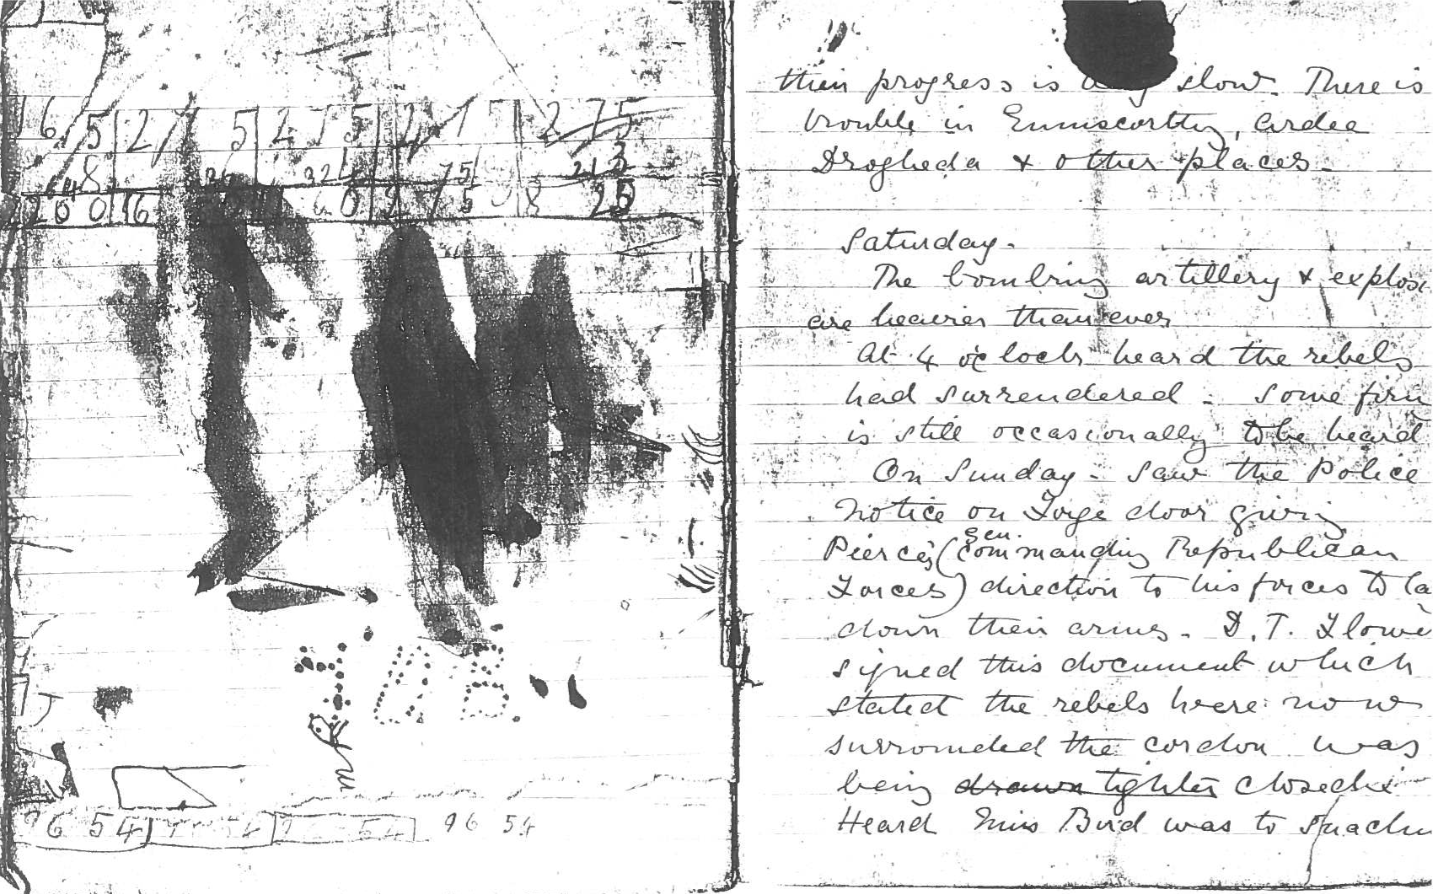 16 5 2 1 5 2 75 2 75 2 75
48 324 75 213
200 16 60 2 75 8 25
96 54 96 54
their progress is very slow. There is
trouble in Enniscorthy, Ardee
Drogheda & other places.
Saturday.
The bombing artillery & explosi
are heavier than ever
At 4 o'clock heard the rebels
had surrendered - some firin
is still occasionally to be heard
On Sunday - saw the Police
Notice on Forge door giving
Pierce's (Gen. commanding Republican
Forces) direction to his forces to la
down their arms. D. T. Flowe
signed this document which
stated the rebels were now
surrounded the cordon was
being drawn tighter closed in
Heard Miss Bird was to